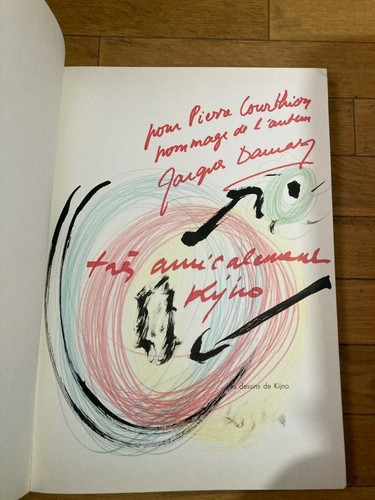 pour Pierre Courthion
hommage de l'auteur
Jacques Damase
très amicalement
Kijno
dessins de Kijno